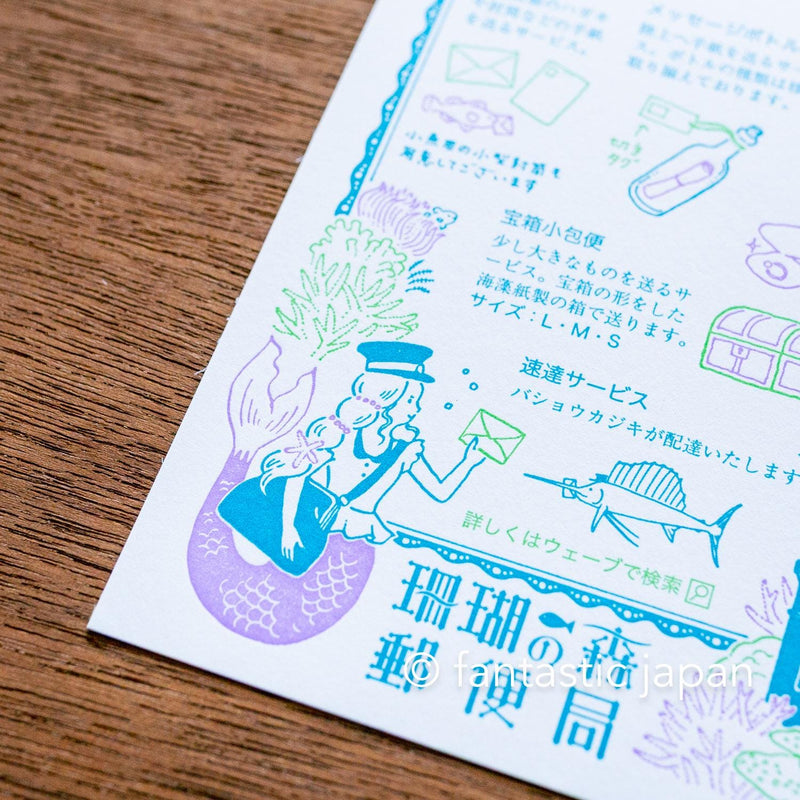 封筒などの手紙
を送るサービス。
メッセージボトル
陸上へ手紙を送るサー
ス。ボトルの種類は様
取り揃えております。
小魚用の小型封筒も
用意してございます
切手
タグ
宝箱小包便
少し大きなものを送るサ
ービス。宝箱の形をした
海藻紙製の箱で送ります。
サイズ：L・M・S
速達サービス
バショウカジキが配達いたします
詳しくはウェーブで検索
珊瑚の森
郵便局
© fantastic japan